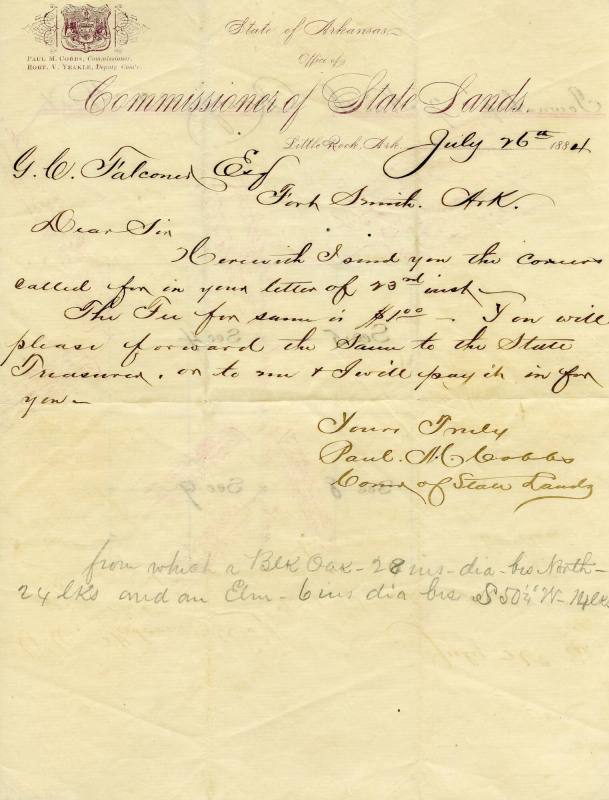 State of Arkansas
Office of
PAUL M. COBBS, Commissioner.
ROBT. V. YEAKLE, Deputy Com'r.
Commissioner of State Lands.
Little Rock, Ark. July 26th 1884
G. C. Falconer Esq
Fort Smith. Ark.
Dear Sir
Herewith I send you the corners
called for in your letter of 23rd inst
The Fee for same is $1.00 - You will
please forward the same to the State
Treasurer, or to me & I will pay it in for
you -
Yours Truly
Paul. M. Cobbs
Comr of State Lands
from which a Blk Oak - 28 ins - dia - brs North -
24 lks and an Elm - 6 ins dia brs S 50¼° W - 14 lks